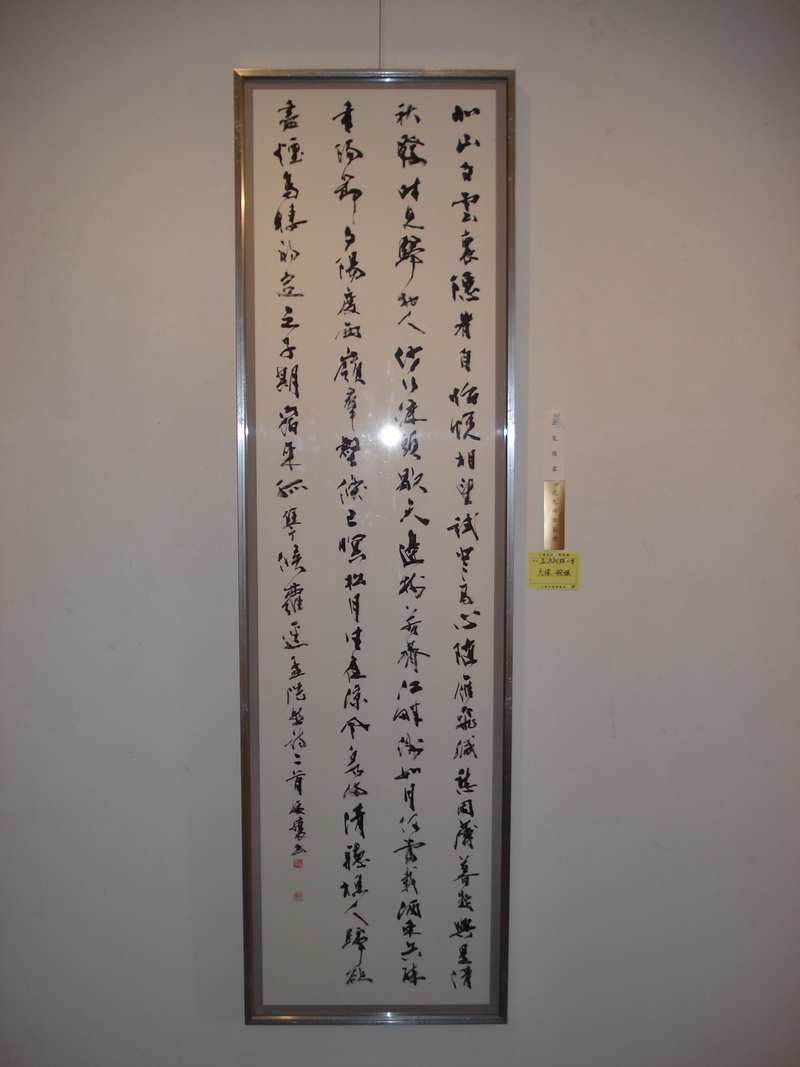 北山白雲裏隱者自怡悅相望試登高心隨雁飛滅愁因薄暮起興是清
秋發時見歸村人沙行渡頭歇天邊樹若薺江畔洲如月何當載酒來共醉
重陽節夕陽度西嶺羣壑倏已暝松月生夜涼風泉滿清聽樵人歸欲
盡煙鳥棲初定之子期宿來孤琴候蘿逕孟浩然詩二首